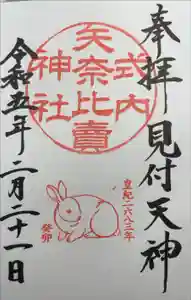 奉拝 見付天神
式内
矢奈比賣
神社
皇紀二六八三年
癸卯
令和五年二月二十一日